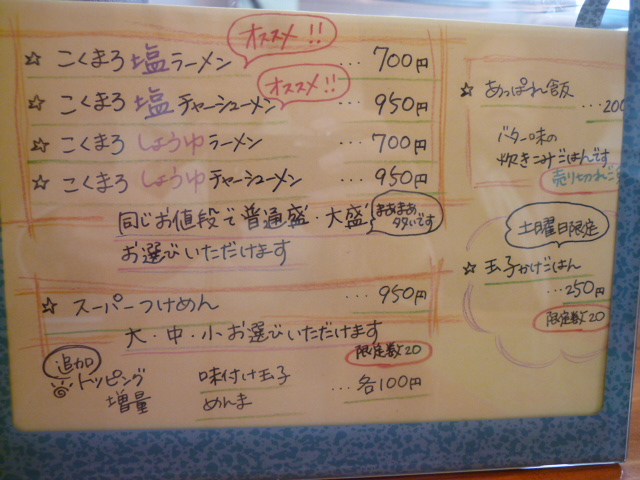 オススメ!!
☆ こくまろ 塩 ラーメン ... 700円
オススメ!!
☆ こくまろ 塩 チャーシューメン ... 950円
☆ こくまろ しょうゆ ラーメン ... 700円
☆ こくまろ しょうゆ チャーシューメン ... 950円
同じお値段で普通盛・大盛 まあまあ、多いです
お選びいただけます
☆ スーパーつけめん ... 950円
大・中・小お選びいただけます
限定数20
追加
トッピング 味付け玉子 ... 各100円
増量 めんま
☆ あっぱれ飯
...200
バター味の
炊きこみごはんです
売り切れご
土曜日限定
☆ 玉子かけごはん
...250円
限定数20